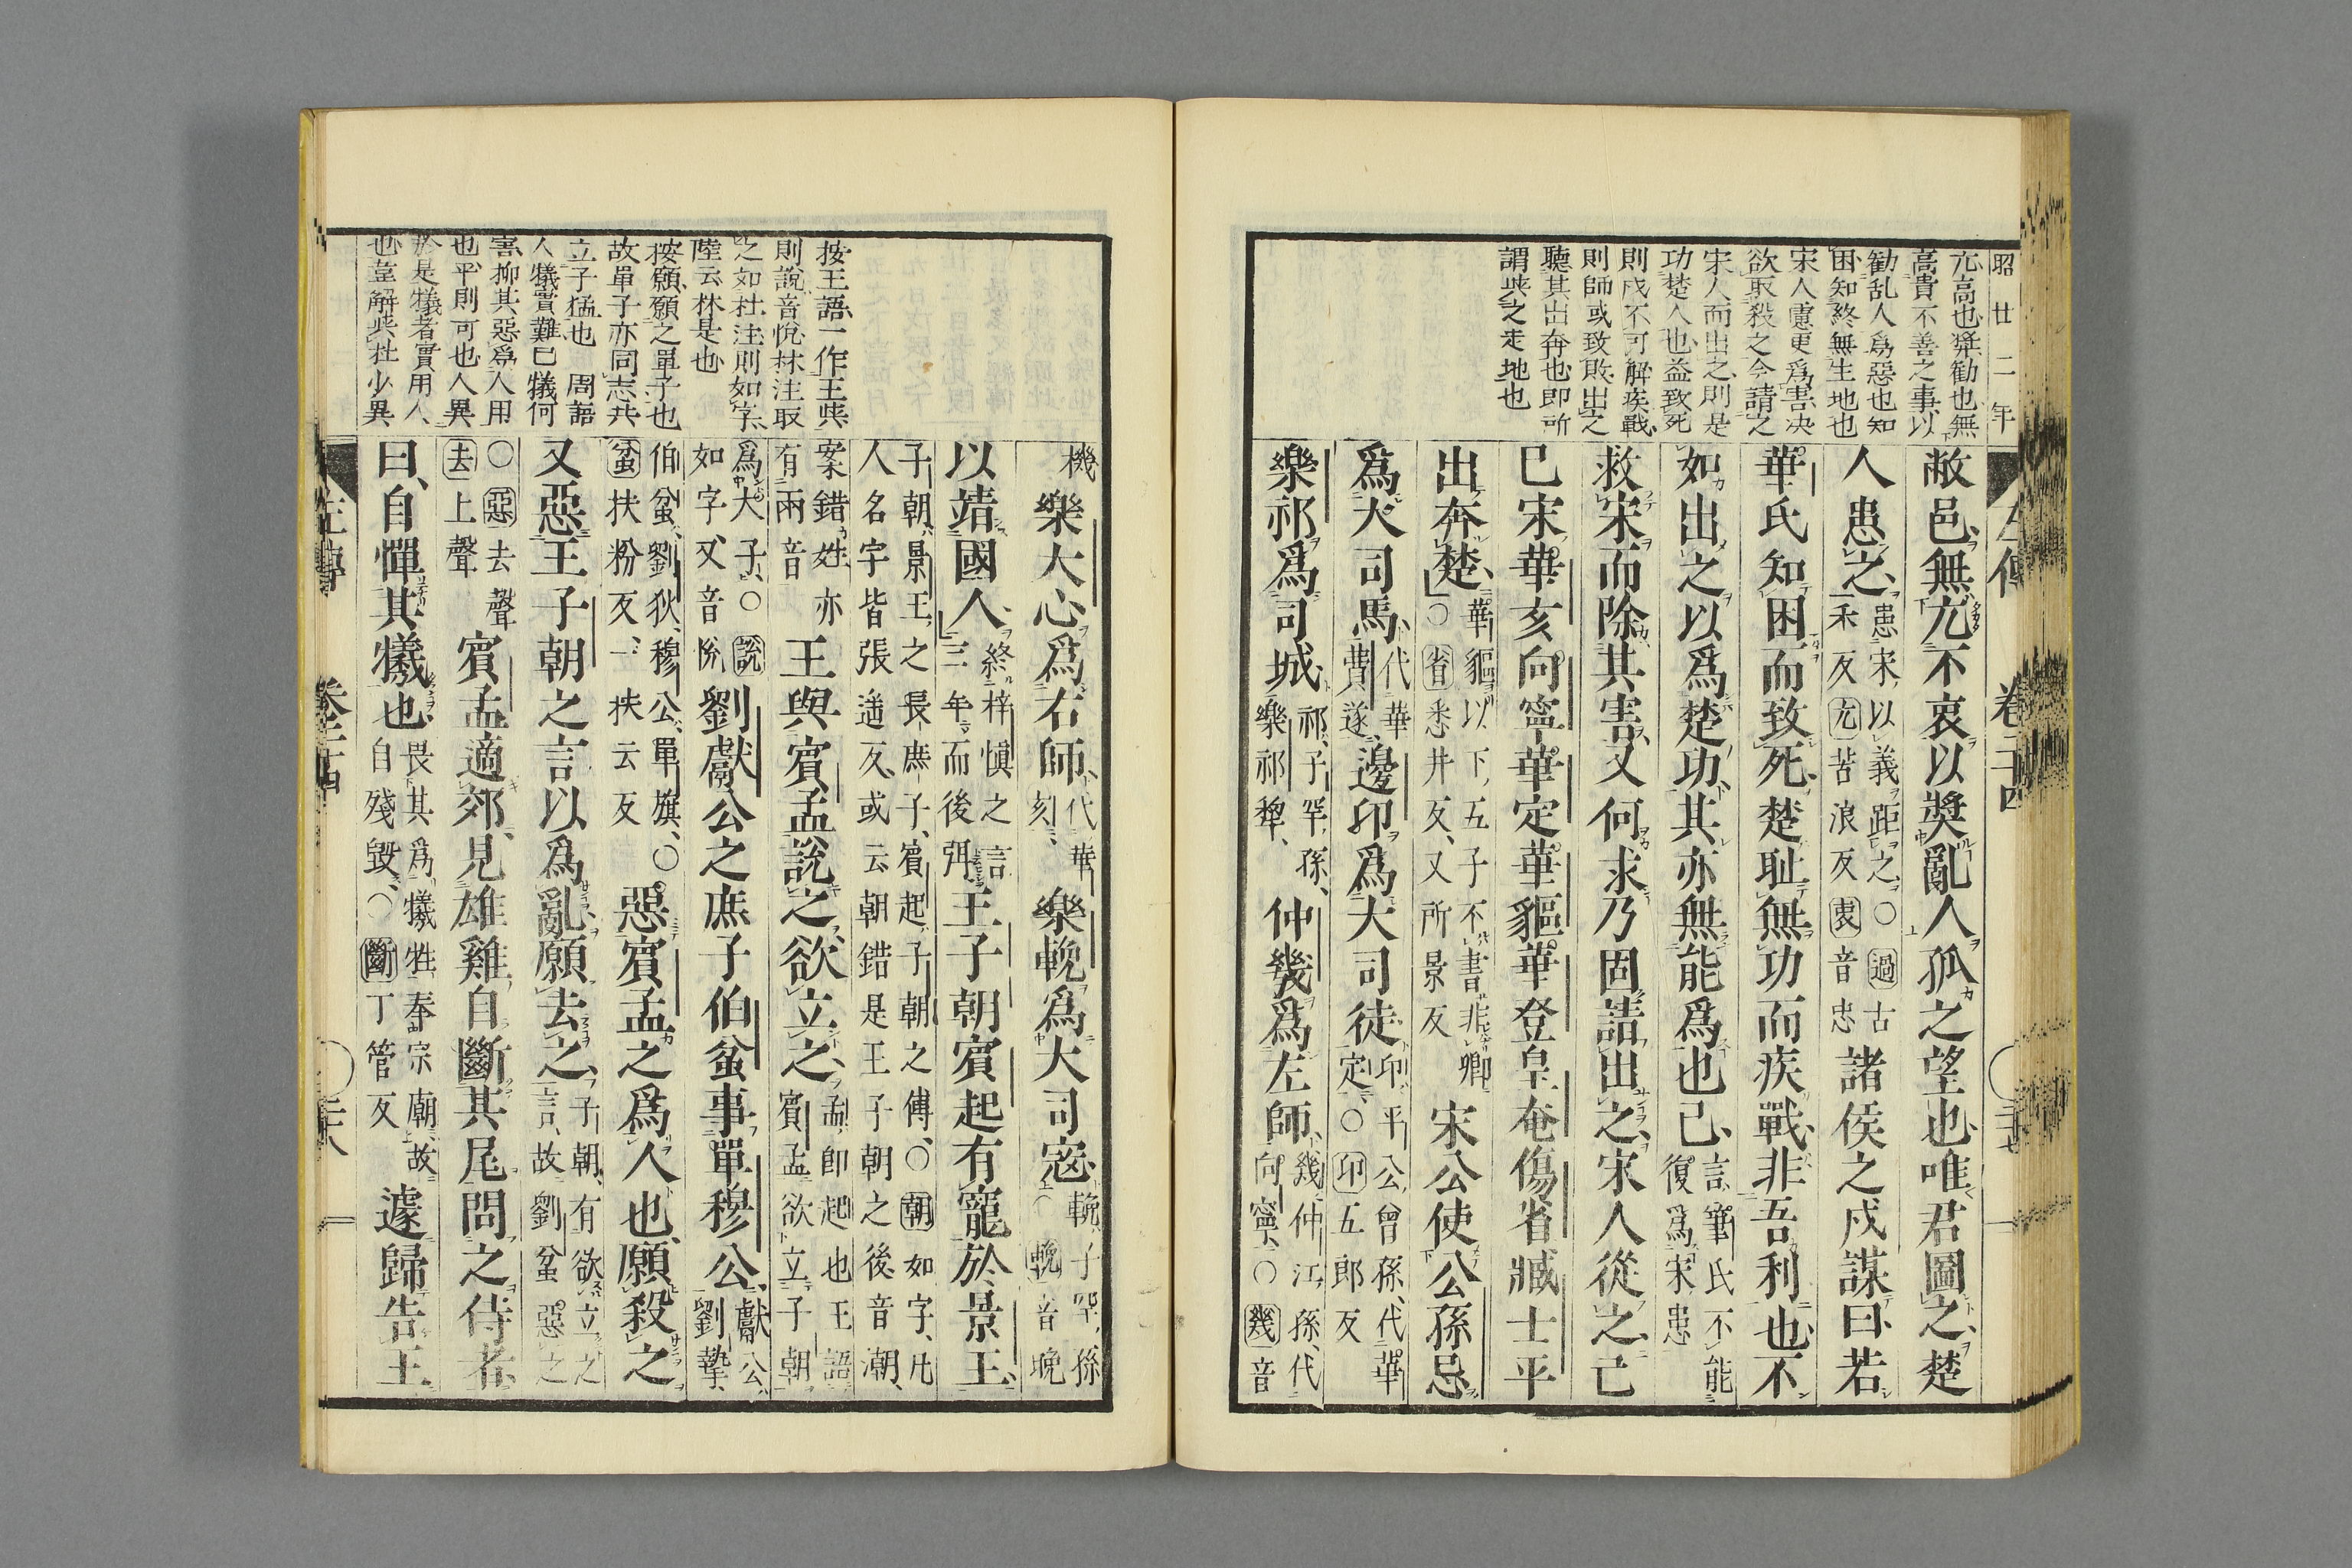 昭廿二年
亢高也奬勸也無
高貴不善之事以
勸乱人為惡也知
困知終無生地也
宋人慮更為害决
欲取殺之今請之
宋人而出之則是
功楚人也益致死
則戍不可解疾戰
則師或致敗出之
聽其出奔也即所
謂與之走地也
敝邑無亢不衷以奬亂人孤之望也唯君圖之楚
人患之患宋以義距之○過古
禾反亢苦浪反衷音忠諸侯之戍謀曰若
華氏知困而致死楚耻無功而疾戰非吾利也不
如出之以爲楚功其亦無能爲也已言華氏不能
復爲宋患
救宋而除其害又何求乃固請出之宋人從之亡
已宋華亥向寧華定華貙華登皇奄傷省臧士平
出奔楚華貙以下五子不書非卿
○省悉井反又所景反宋公使公孫忌
爲大司馬代華
費遂邊卬爲大司徒卬平公曾孫代華
定○卬五郎反
樂祁爲司城祁子罕孫
樂祁犂仲幾爲左師幾仲江孫代
向寧○幾音
左傳 卷二十四 二十七
機樂大心爲右師代華
刻樂輓爲大司寇輓子罕孫
○輓音晚
以靖國人終梓愼之言
三年而後弭王子朝賓起有寵於景王
子朝景王之長庶子賓起子朝之傅○朝如字凡
人名字皆張遥反或云朝錯是王子朝之後音潮
案錯姓亦
有兩音王與賓孟說之欲立之孟即起也王語
賓孟欲立子朝
爲大子○說
如字又音悅劉獻公之庶子伯蚠事單穆公獻公
劉摯
伯蚠劉狄穆公單旗○
蚠扶粉反一扶云反惡賓孟之爲人也願殺之
又惡王子朝之言以爲亂願去之子朝有欲立之
言故劉蚠惡之
○惡去聲
去上聲賓孟適郊見雄雞自斷其尾問之侍者
曰自憚其犧也畏其爲犧牲奉宗廟故
自殘毁○斷丁管反遽歸告王
按王語一作王與
則說音悅林注取
之如杜注則如字
陸云林是也
按願願之單子也
故單子亦同志共
立子猛也 周語
人犧實難已犧何
害抑其惡爲人用
也乎則可也人異
於是犧者實用人
也韋解與杜少異
左傳 卷二十四 二十八